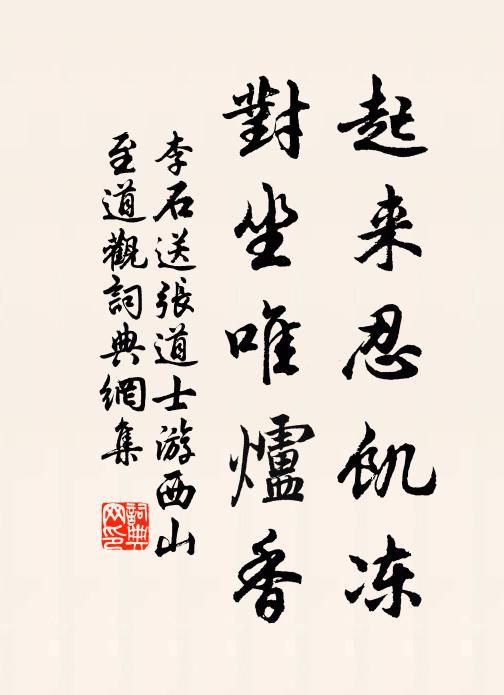 起来忍飢冻
對坐唯爐香
李石送張道士游西山
至道觀詞典網集
詞典
网印